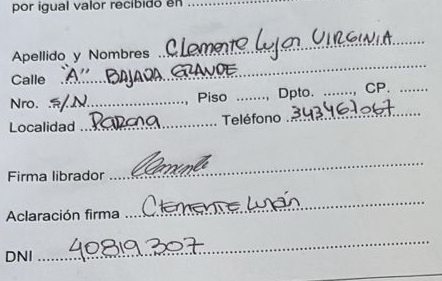 por igual valor recibido en ..............
Apellido y Nombres ..Clemente Lujan VIRGINIA
Calle "A" BAJADA GRANDE
Nro. S/N, Piso ......., Dpto. ......., CP. .......
Localidad ..Parana.............. Teléfono ..343461067
Firma librador ..Clemente
Aclaración firma ....Clemente Luján
DNI ......40819307